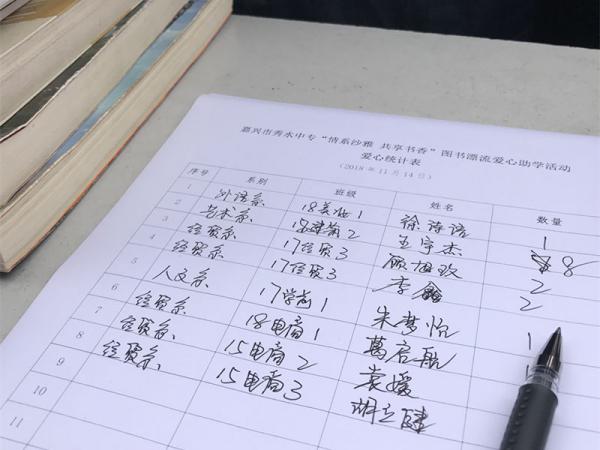 嘉兴市秀水中专“情系沙雅 共享书香”图书漂流爱心助学活动
爱心统计表
(2018年11月14日)
序号 系别 班级 姓名 数量
1 外语系 18美妆1 徐诗语 1
2 艺术系 18建筑2 王宇杰 8
3 经贸系 17经贸3 顾 2
4 经贸系 17经贸3 李鑫 2
5 人文系 17学前1 朱梦怡 1
6 经贸系 18电商1 葛启航 1
7 经贸系 15电商2 袁媛
8 经贸系 15电商3 胡立健
9
10
11